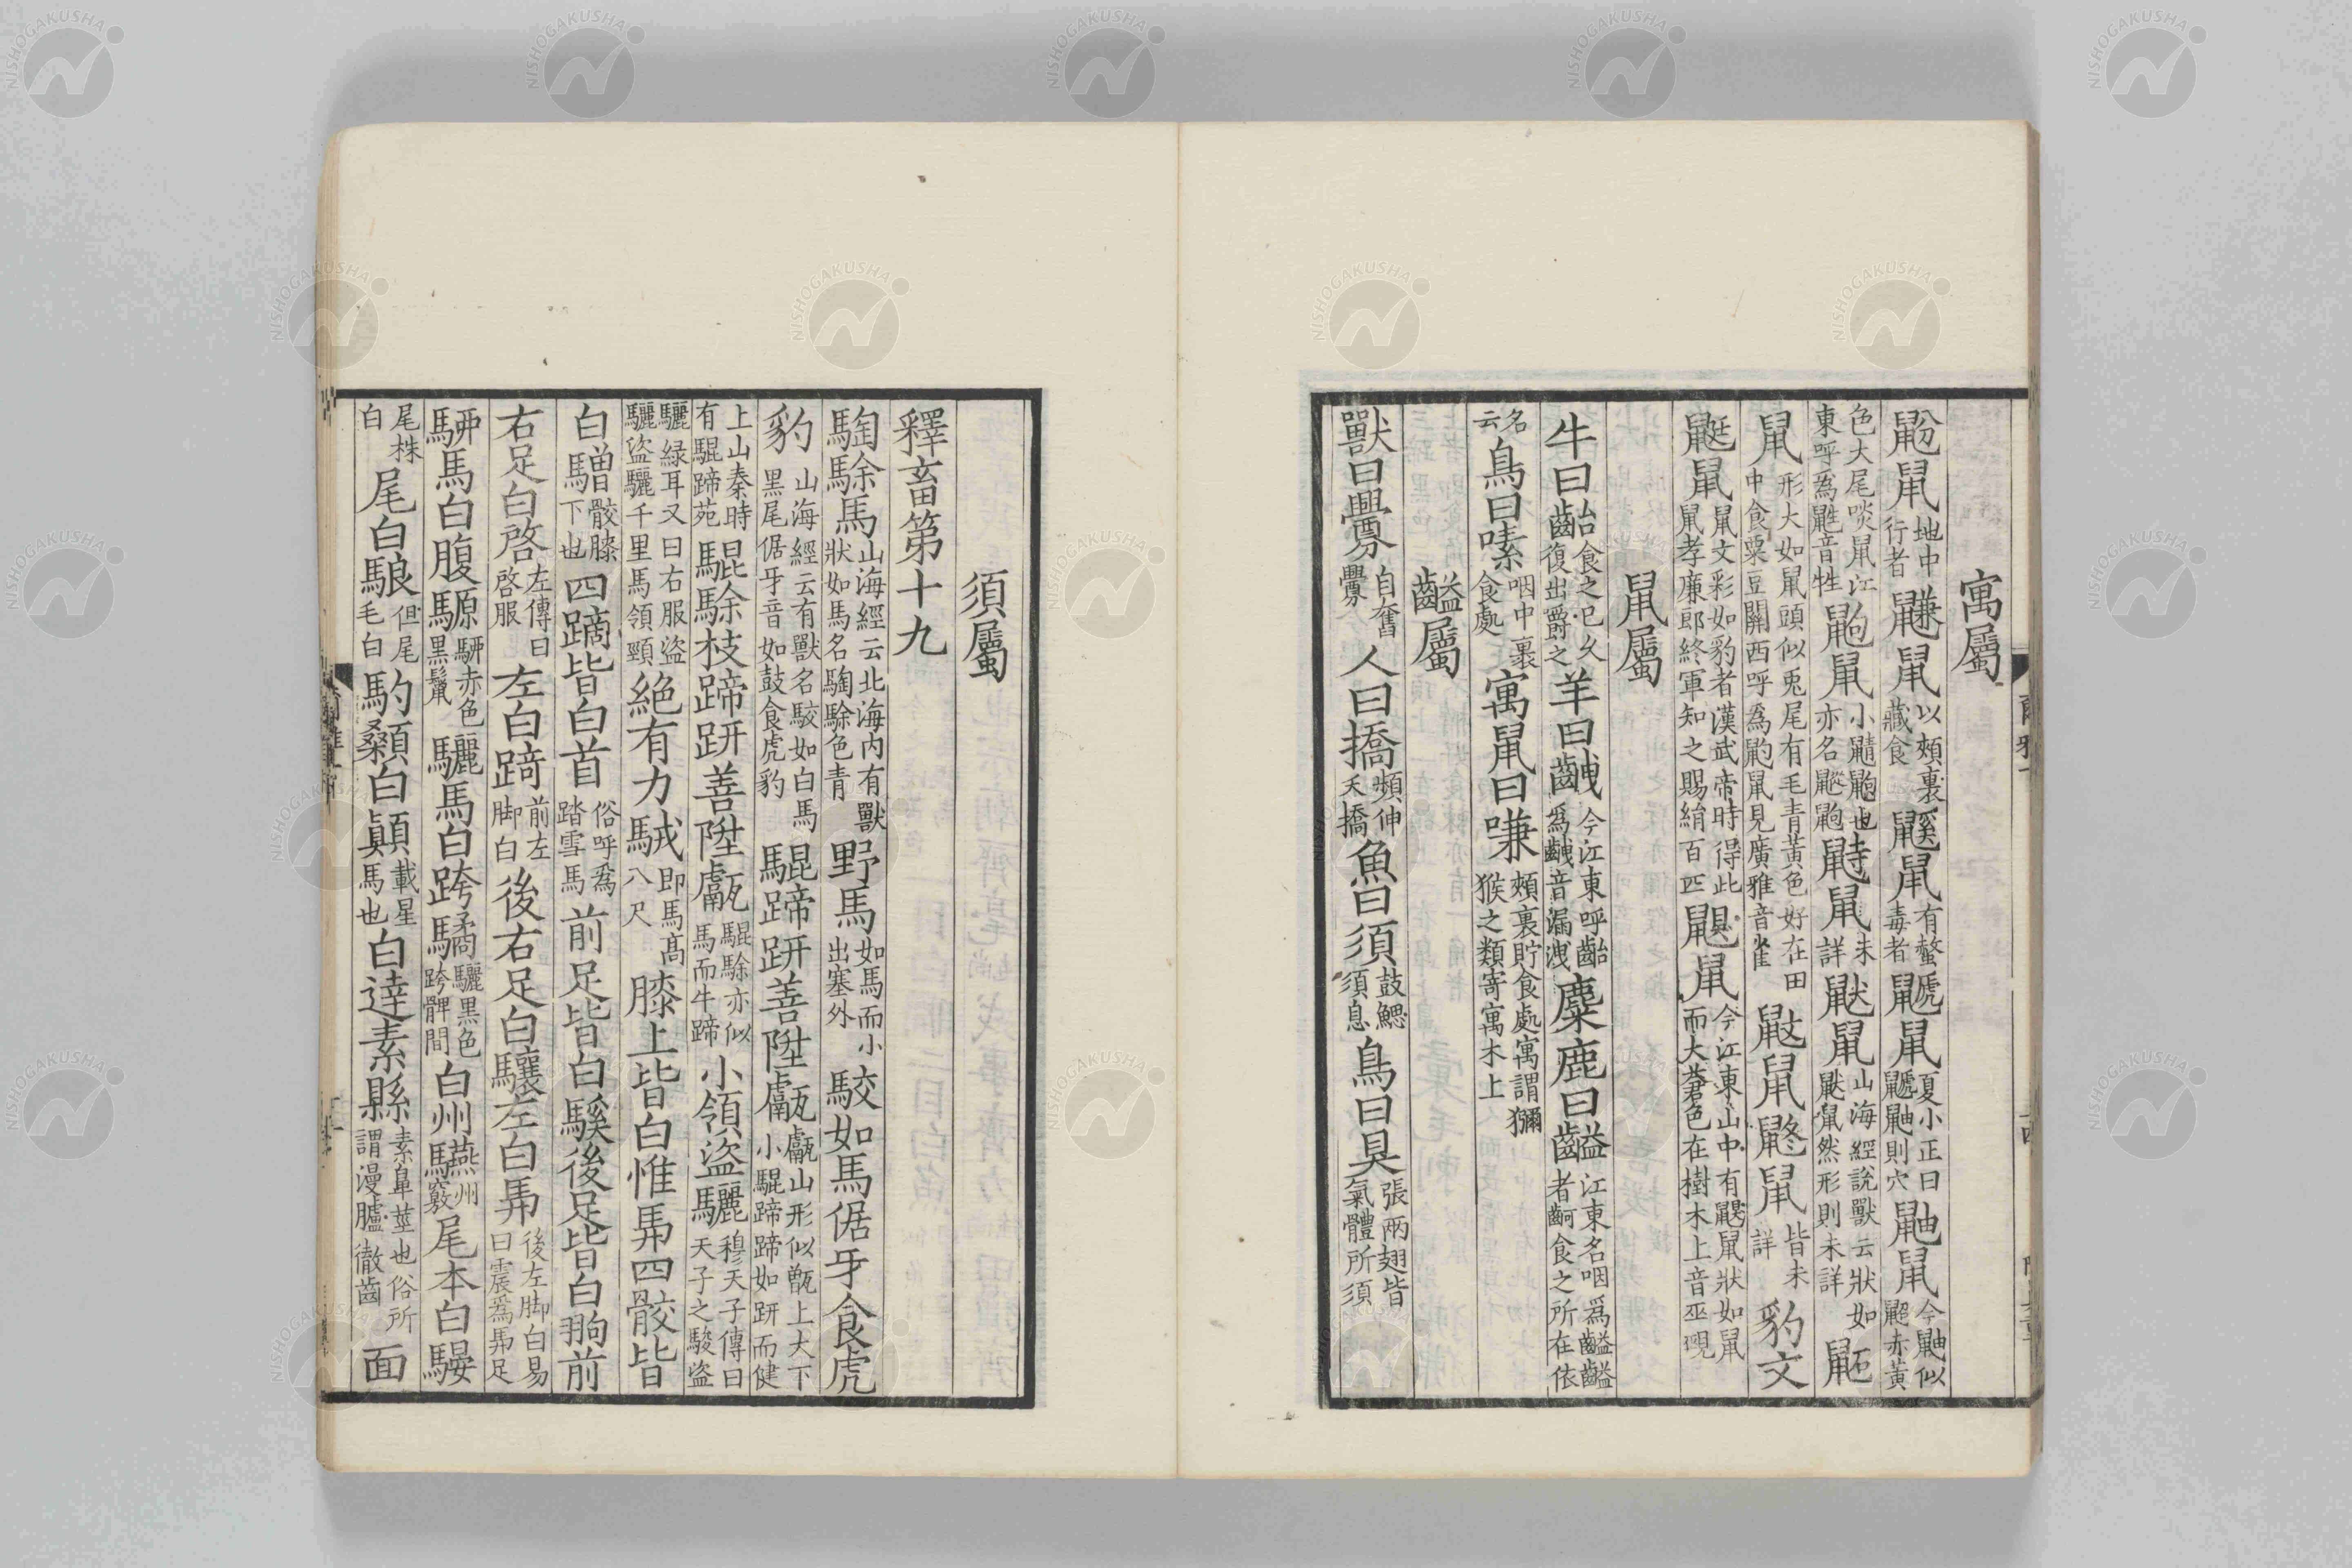 寓屬
鼢鼠地中行者鼸鼠以頰裏藏食鼷鼠有螫毒者鼶鼠夏小正曰鼶鼬則穴鼬鼠今鼬似鼦赤黃
色大尾啖鼠江東呼爲鼪音牲鼩鼠小鼱鼩也亦名䶆鼩鼭鼠未詳鼣鼠山海經說獸云狀如鼣鼠然形則未詳鼫
鼠形大如鼠頭似兎尾有毛青黃色好在田中食粟豆關西呼爲鼩鼠見廣雅音雀鼤鼠鼨鼠皆未詳豹文
鼮鼠鼠文彩如豹者漢武帝時得此鼠孝廉郎終軍知之賜絹百匹鼳鼠今江東山中有鼳鼠狀如鼠而大蒼色在樹木上音巫覡
鼠屬
牛曰齝食之已久復出嚼之羊曰齥今江東呼齝爲齥音漏洩麋鹿曰齸江東名咽爲齸齸者齝食之所在依
名云鳥曰嗉咽中裹食處寓鼠曰嗛頰裏貯食處寓謂獼猴之類寄寓木上
齸屬
獸曰釁自奮釁人曰撟頻伸夭撟魚曰須鼓鰓須息鳥曰狊張兩翅皆氣體所須
須屬
釋畜第十九
騊駼馬山海經云北海內有獸狀如馬名騊駼色青野馬如馬而小出塞外駮如馬倨牙食虎
豹山海經云有獸名駮如白馬黑尾倨牙音如鼓食虎豹騉蹄趼善陞甗甗山形似甑上大下小騉蹄蹄如趼而健
上山秦時有騉蹄苑騉駼枝蹄趼善陞甗騉駼亦似馬而牛蹄小領盜驪穆天子傳曰天子之駿盜
驪綠耳又曰右服盜驪盜驪千里馬領頸絕有力駥即馬高八尺膝上皆白惟馵四骹皆
白驓骹膝下也四蹢皆白首俗呼爲踏雪馬前足皆白騱後足皆白翑前
右足白啓左傳曰啓服左白踦前左脚白後右足白驤左白馵後左脚白易曰震爲馵足
駵馬白腹騵駵赤色黑鬣驪馬白跨驈驪黑色跨髀間白州驠州竅尾本白騴
尾株白尾白駺但尾毛白馰顙白顚戴星馬也白達素縣素鼻莖也俗所謂漫臚徹齒面
NISHOGAKUSHA